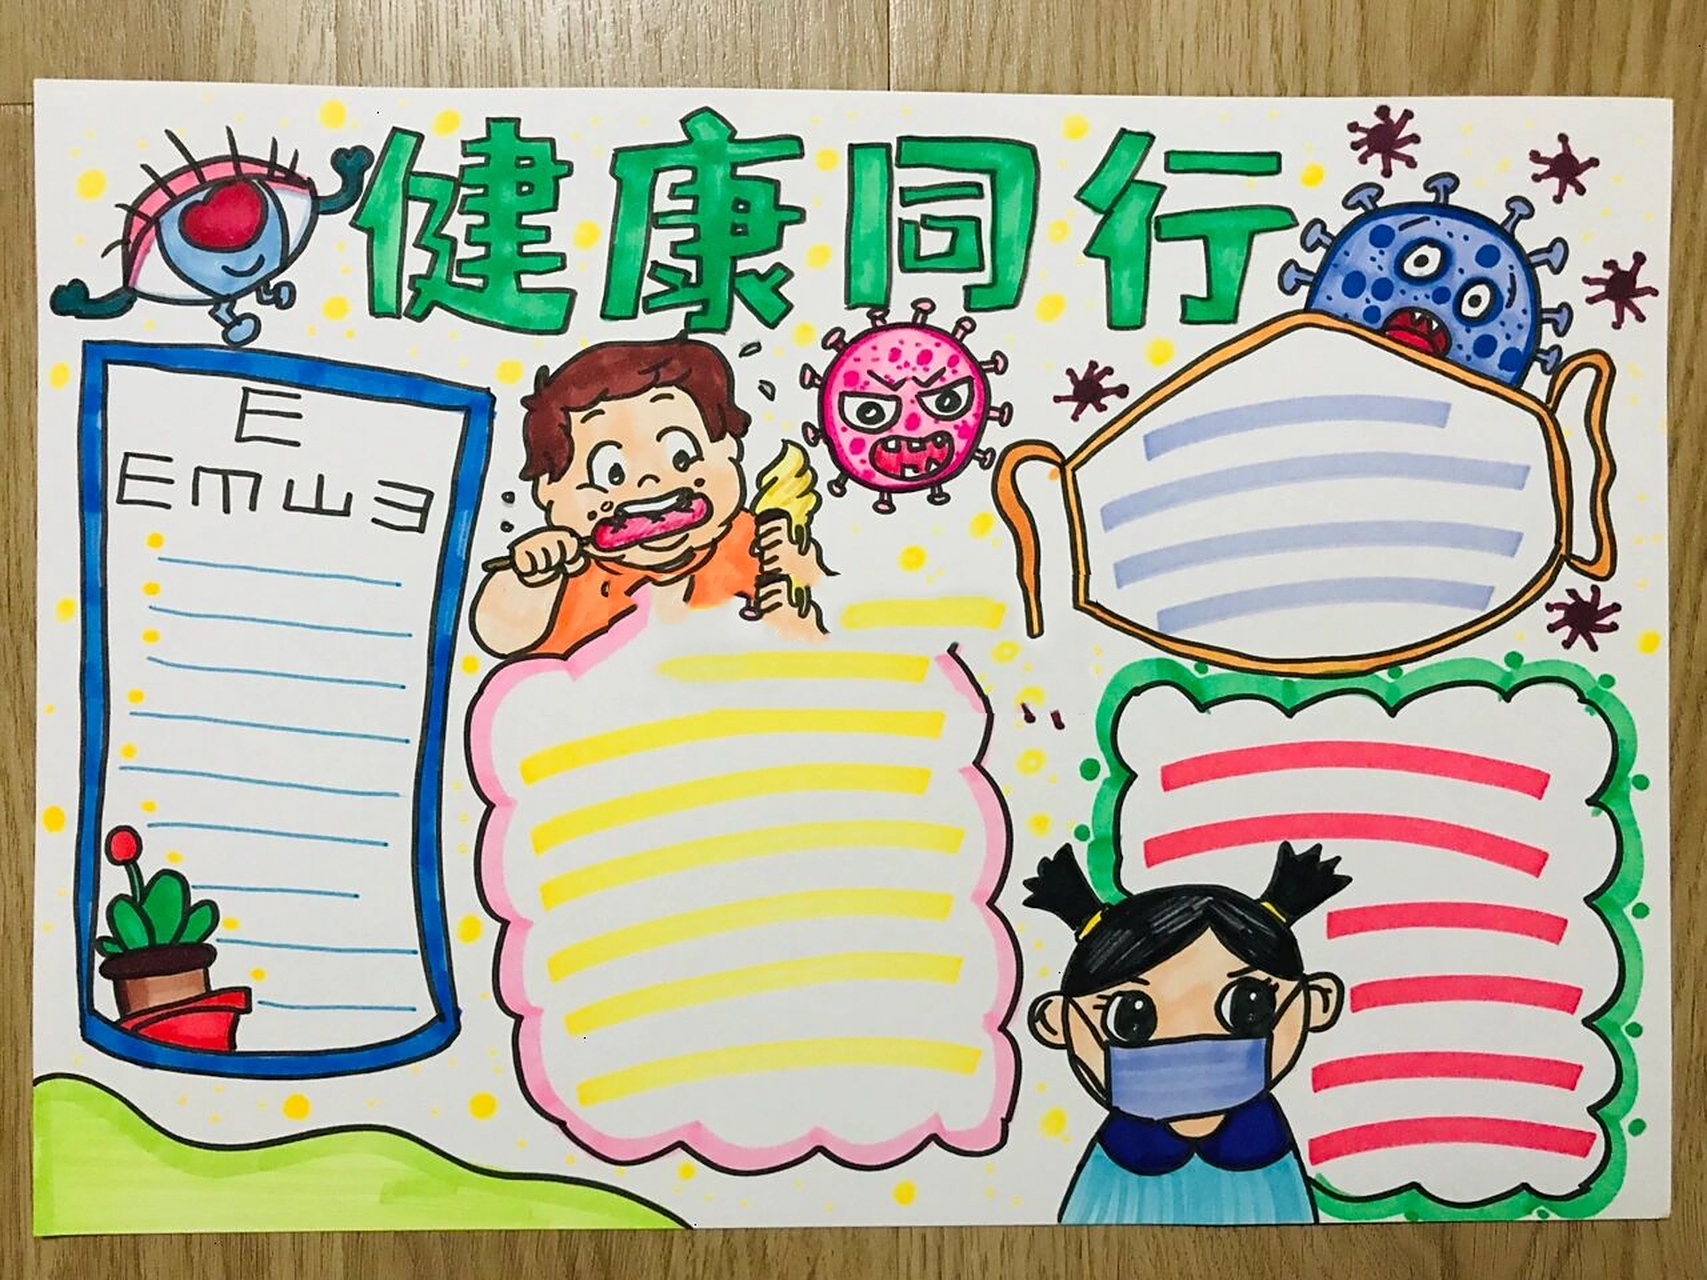 健康同行
E
E m ш ∃